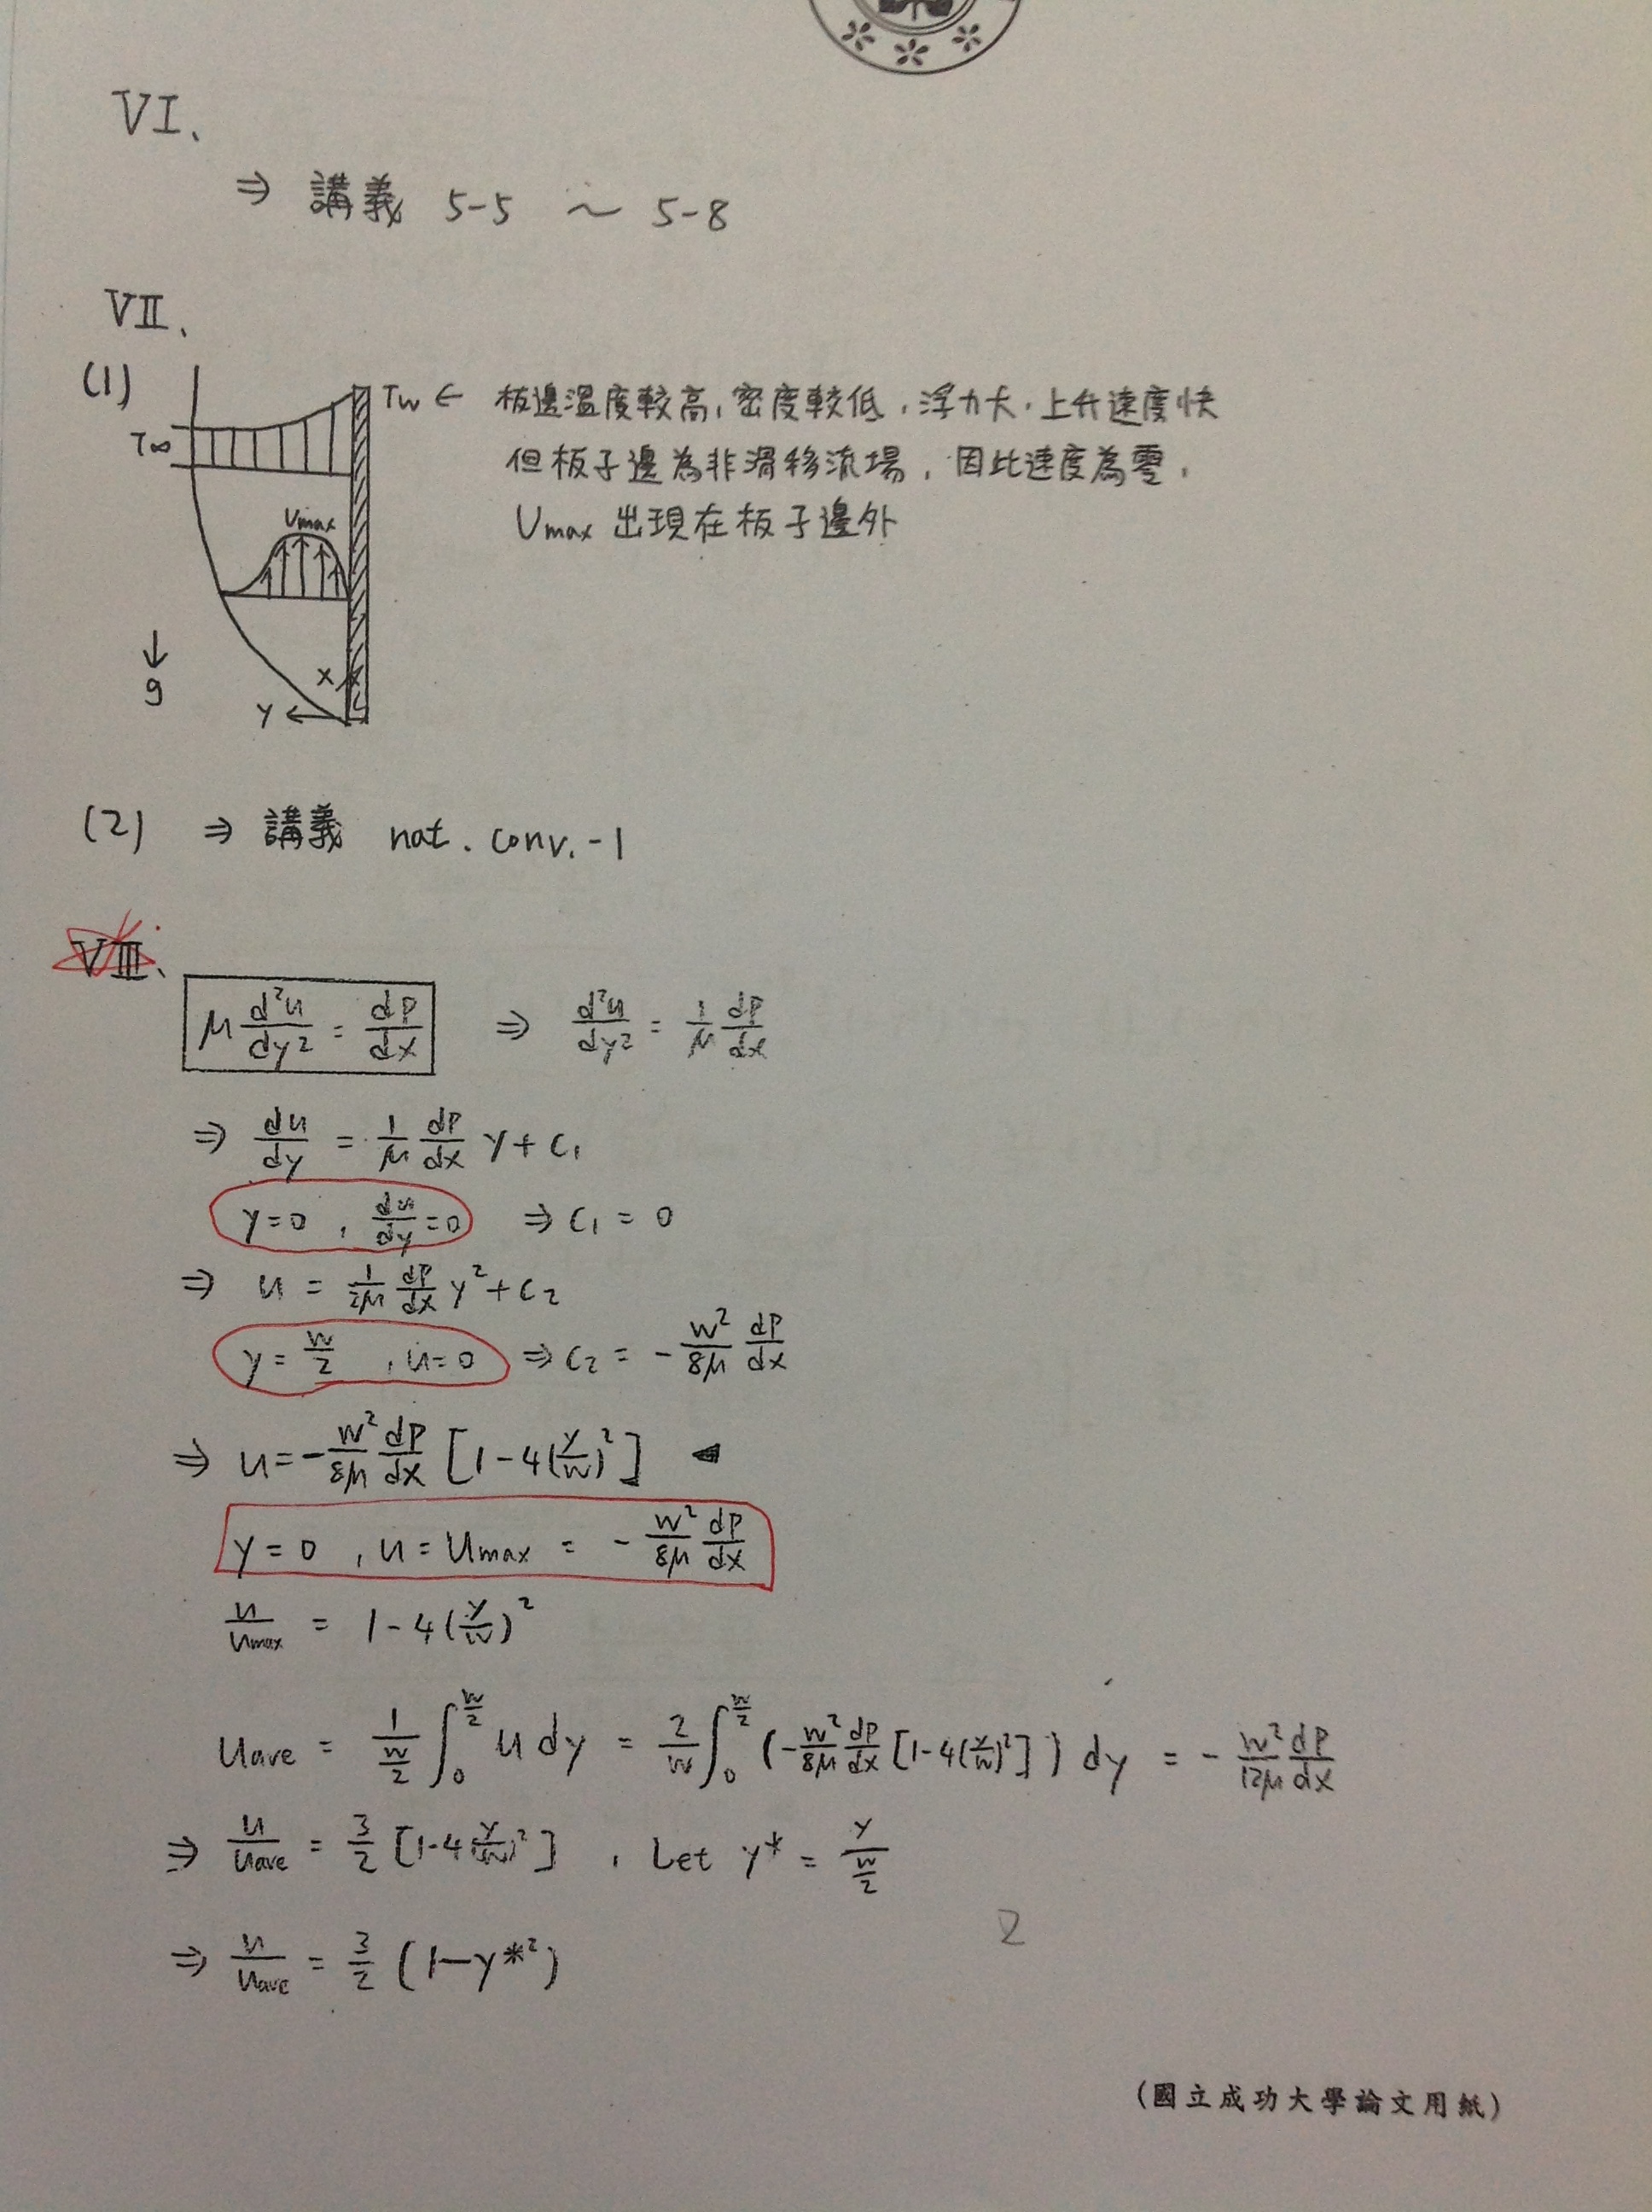 VI、
⇒ 講義 5-5 ~ 5-8
VII、
(1)
Tw ← 板邊溫度較高,密度較低,浮力大,上升速度快
T∞
但板子邊為非滑移流場,因此速度為零,
Umax 出現在板子邊外
Umax
↓
g
X
Y ←
(2) ⇒ 講義 nat. conv.-1
VIII、
μ d²u/dy² = dP/dx ⇒ d²u/dy² = 1/μ dP/dx
⇒ du/dy = 1/μ dP/dx y + C₁
y=0 , du/dy=0 ⇒ C₁ = 0
⇒ u = 1/2μ dP/dx y² + C₂
y = w/2 , u=0 ⇒ C₂ = - w²/8μ dP/dx
⇒ u = - w²/8μ dP/dx [1-4(y/w)²]
y = 0 , u = Umax = - w²/8μ dP/dx
u/Umax = 1-4(y/w)²
Uave = 1/(w/2) ∫₀^(w/2) u dy = 2/w ∫₀^(w/2) (- w²/8μ dP/dx [1-4(y/w)²]) dy = - w²/12μ dP/dx
⇒ u/Uave = 3/2 [1-4(y/w)²] , Let y* = y/(w/2)
⇒ u/Uave = 3/2 (1-y*²)
2
(國立成功大學論文用紙)